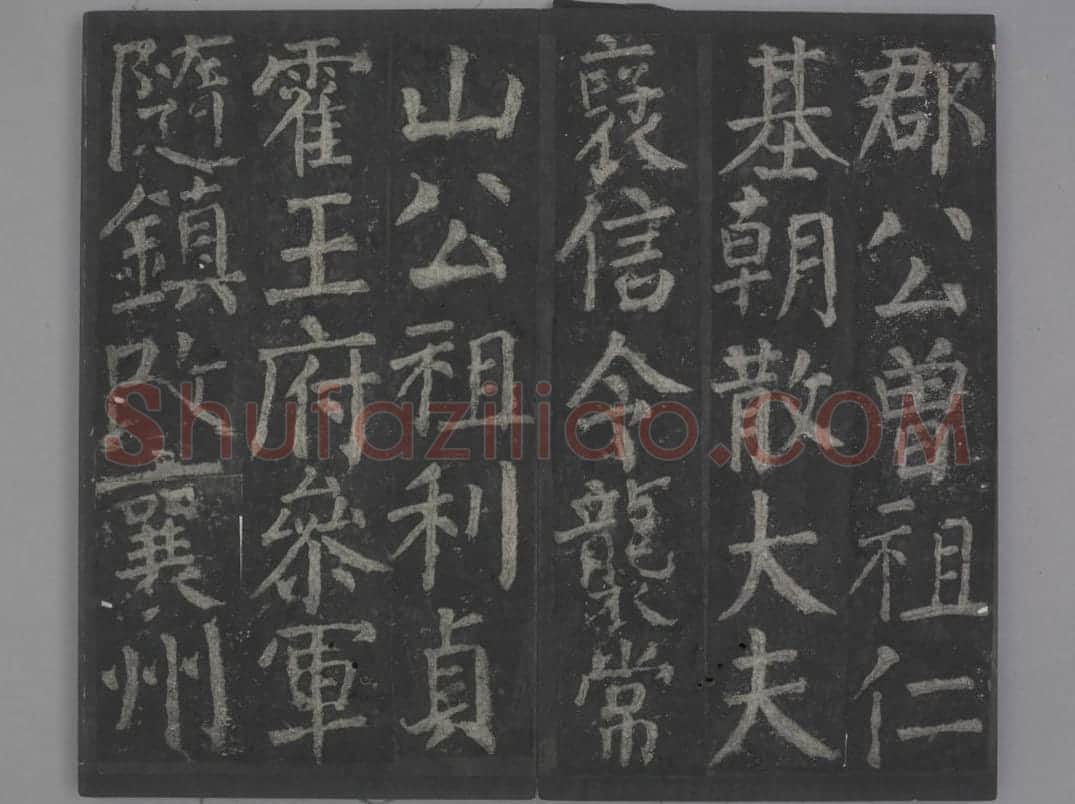 郡公曾祖仁
基朝散大夫
褒信令襲常
山公祖利貞
霍王府參軍
隨鎮改襄州
Shufaziliao.COM